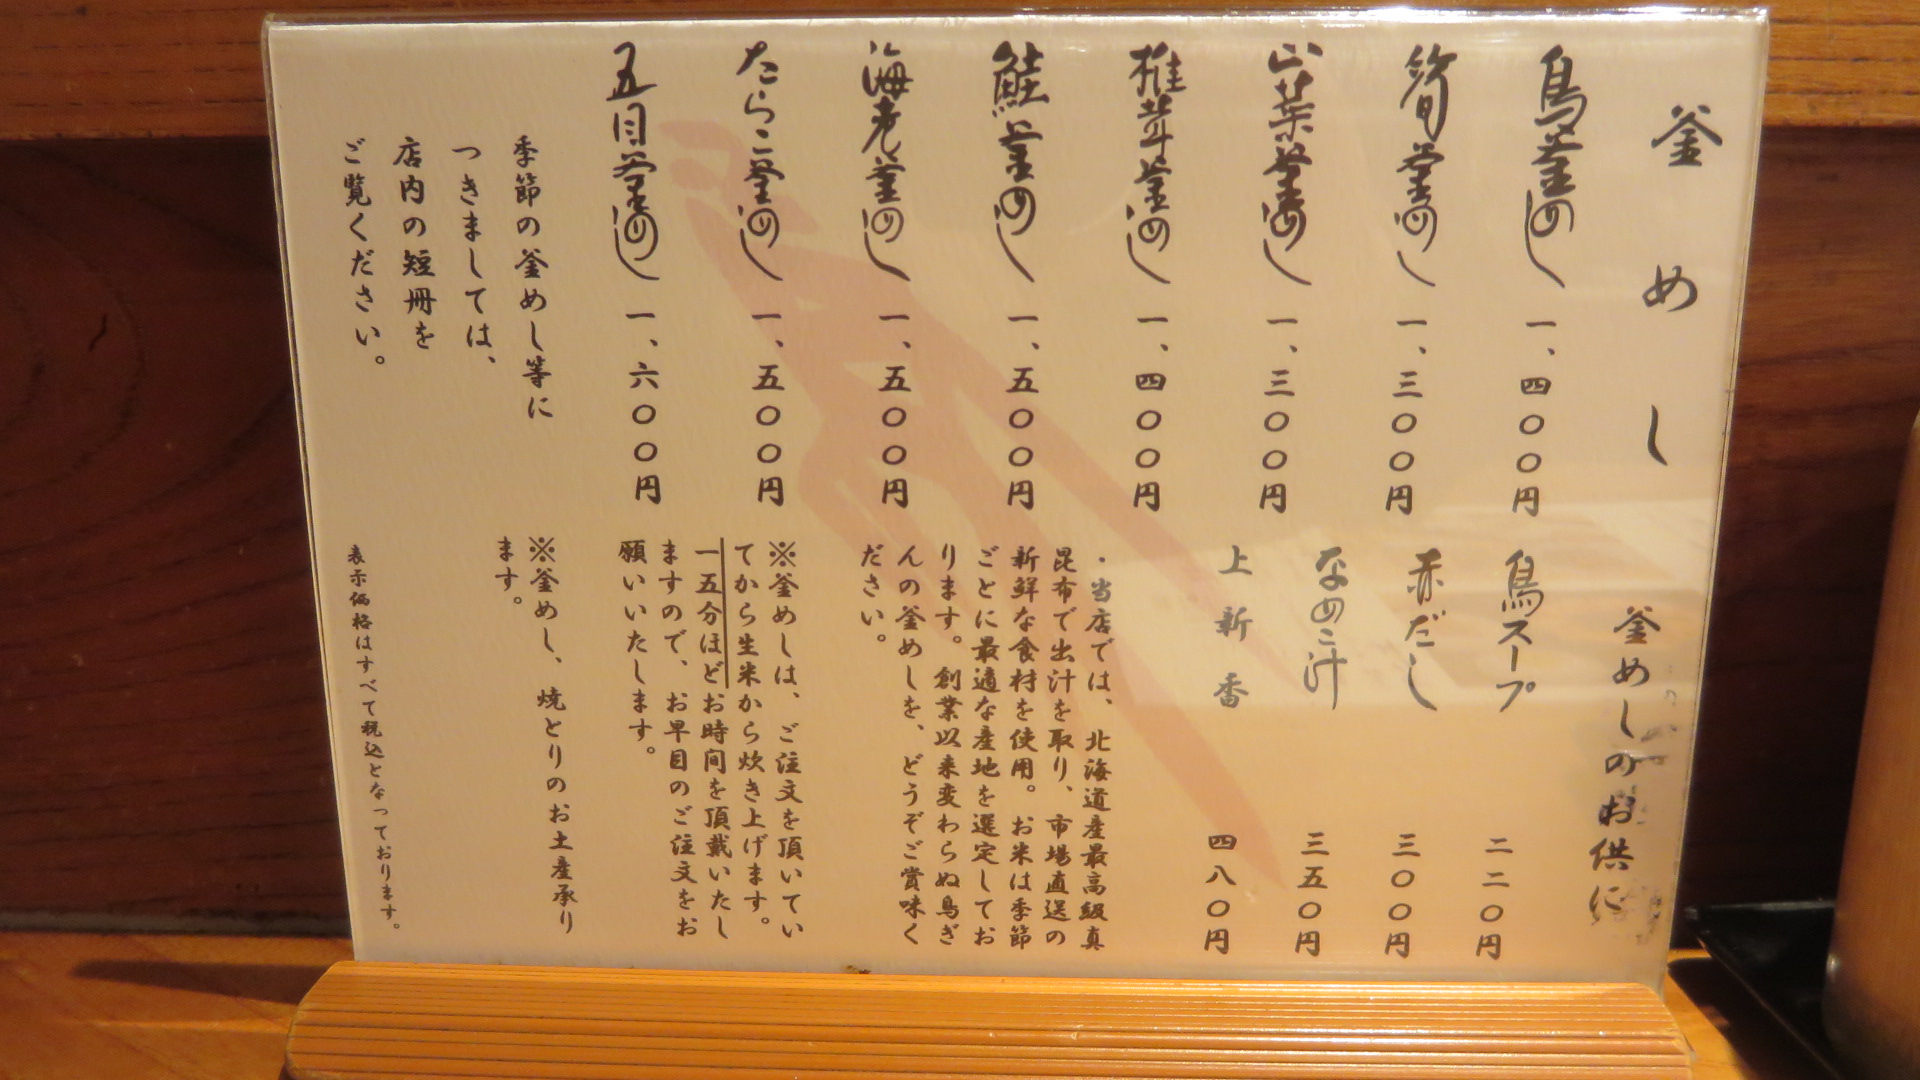 釜めし
鳥釜めし 一、四〇〇円
筍釜めし 一、三〇〇円
山菜釜めし 一、三〇〇円
椎茸釜めし 一、四〇〇円
鮭釜めし 一、五〇〇円
海老釜めし 一、五〇〇円
たらこ釜めし 一、五〇〇円
五目釜めし 一、六〇〇円
季節の釜めし等に
つきましては、
店内の短冊を
ご覧ください。
釜めしのお供に
鳥スープ 二二〇円
赤だし 三〇〇円
なめこ汁 三五〇円
上新香 四八〇円
・当店では、北海道産最高級真
昆布で出汁を取り、市場直送の
新鮮な食材を使用。お米は季節
ごとに最適な産地を選定してお
ります。創業以来変わらぬ鳥ぎ
んの釜めしを、どうぞご賞味く
ださい。
※釜めしは、ご注文を頂いてい
てから生米から炊き上げます。
一五分ほどお時間を頂戴いたし
ますので、お早目のご注文をお
願いいたします。
※釜めし、焼とりのお土産承り
ます。
表示価格はすべて税込となっております。